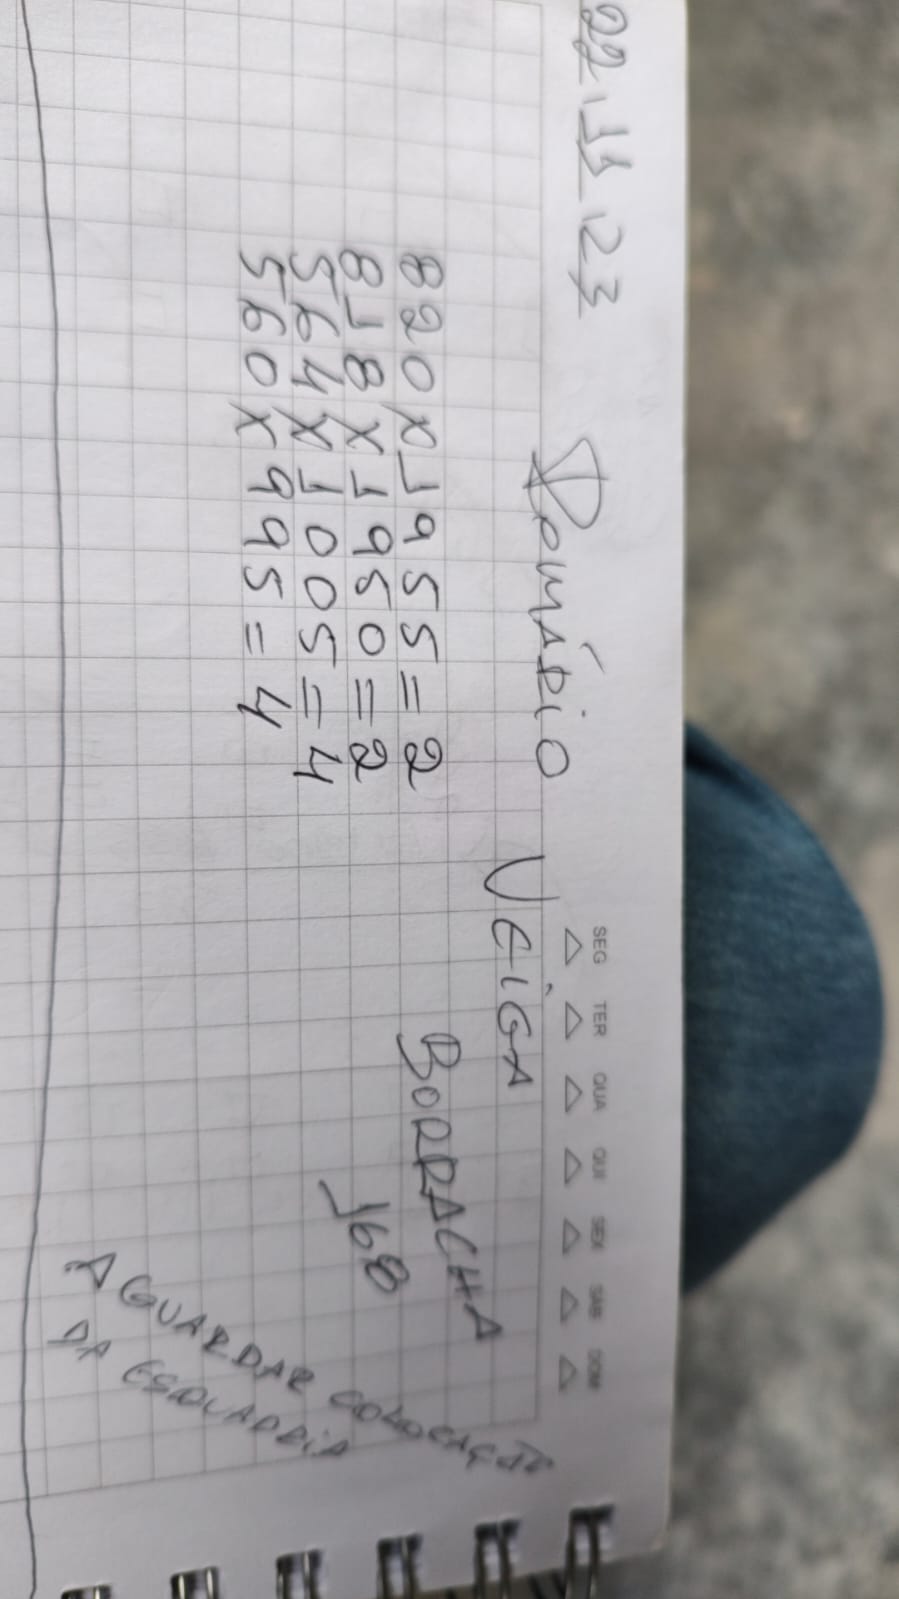 22.11.23
Romário Veiga
SEG TER QUA QUI SEX SAB DOM
820x1955=2
818x1950=2
564x1005=4
560x995=4
Borracha
168
Aguardar colocação
da esquadria